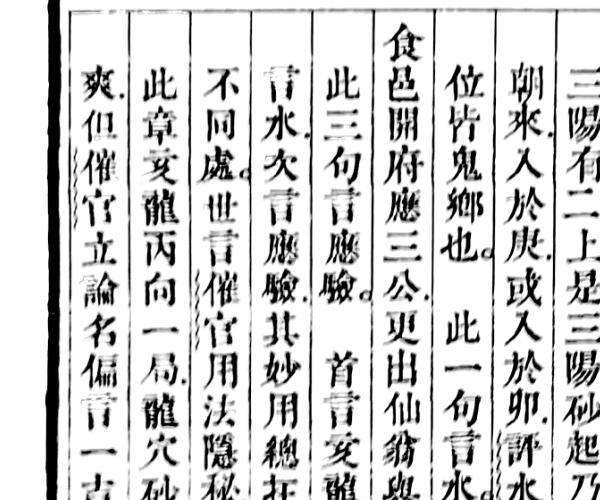 三陽有二上是三陽砂起乃
朝來入於庚或入於卯評水
位皆鬼鄉也。 此一句言水。
食邑開府應三公更出仙翁與
此三句言應驗。 首言亥龍
言水次言應驗其妙用總在
不同處。世言催官用法隱秘
此章亥龍丙向一局龍穴砂
爽但催官立論名偏言一吉